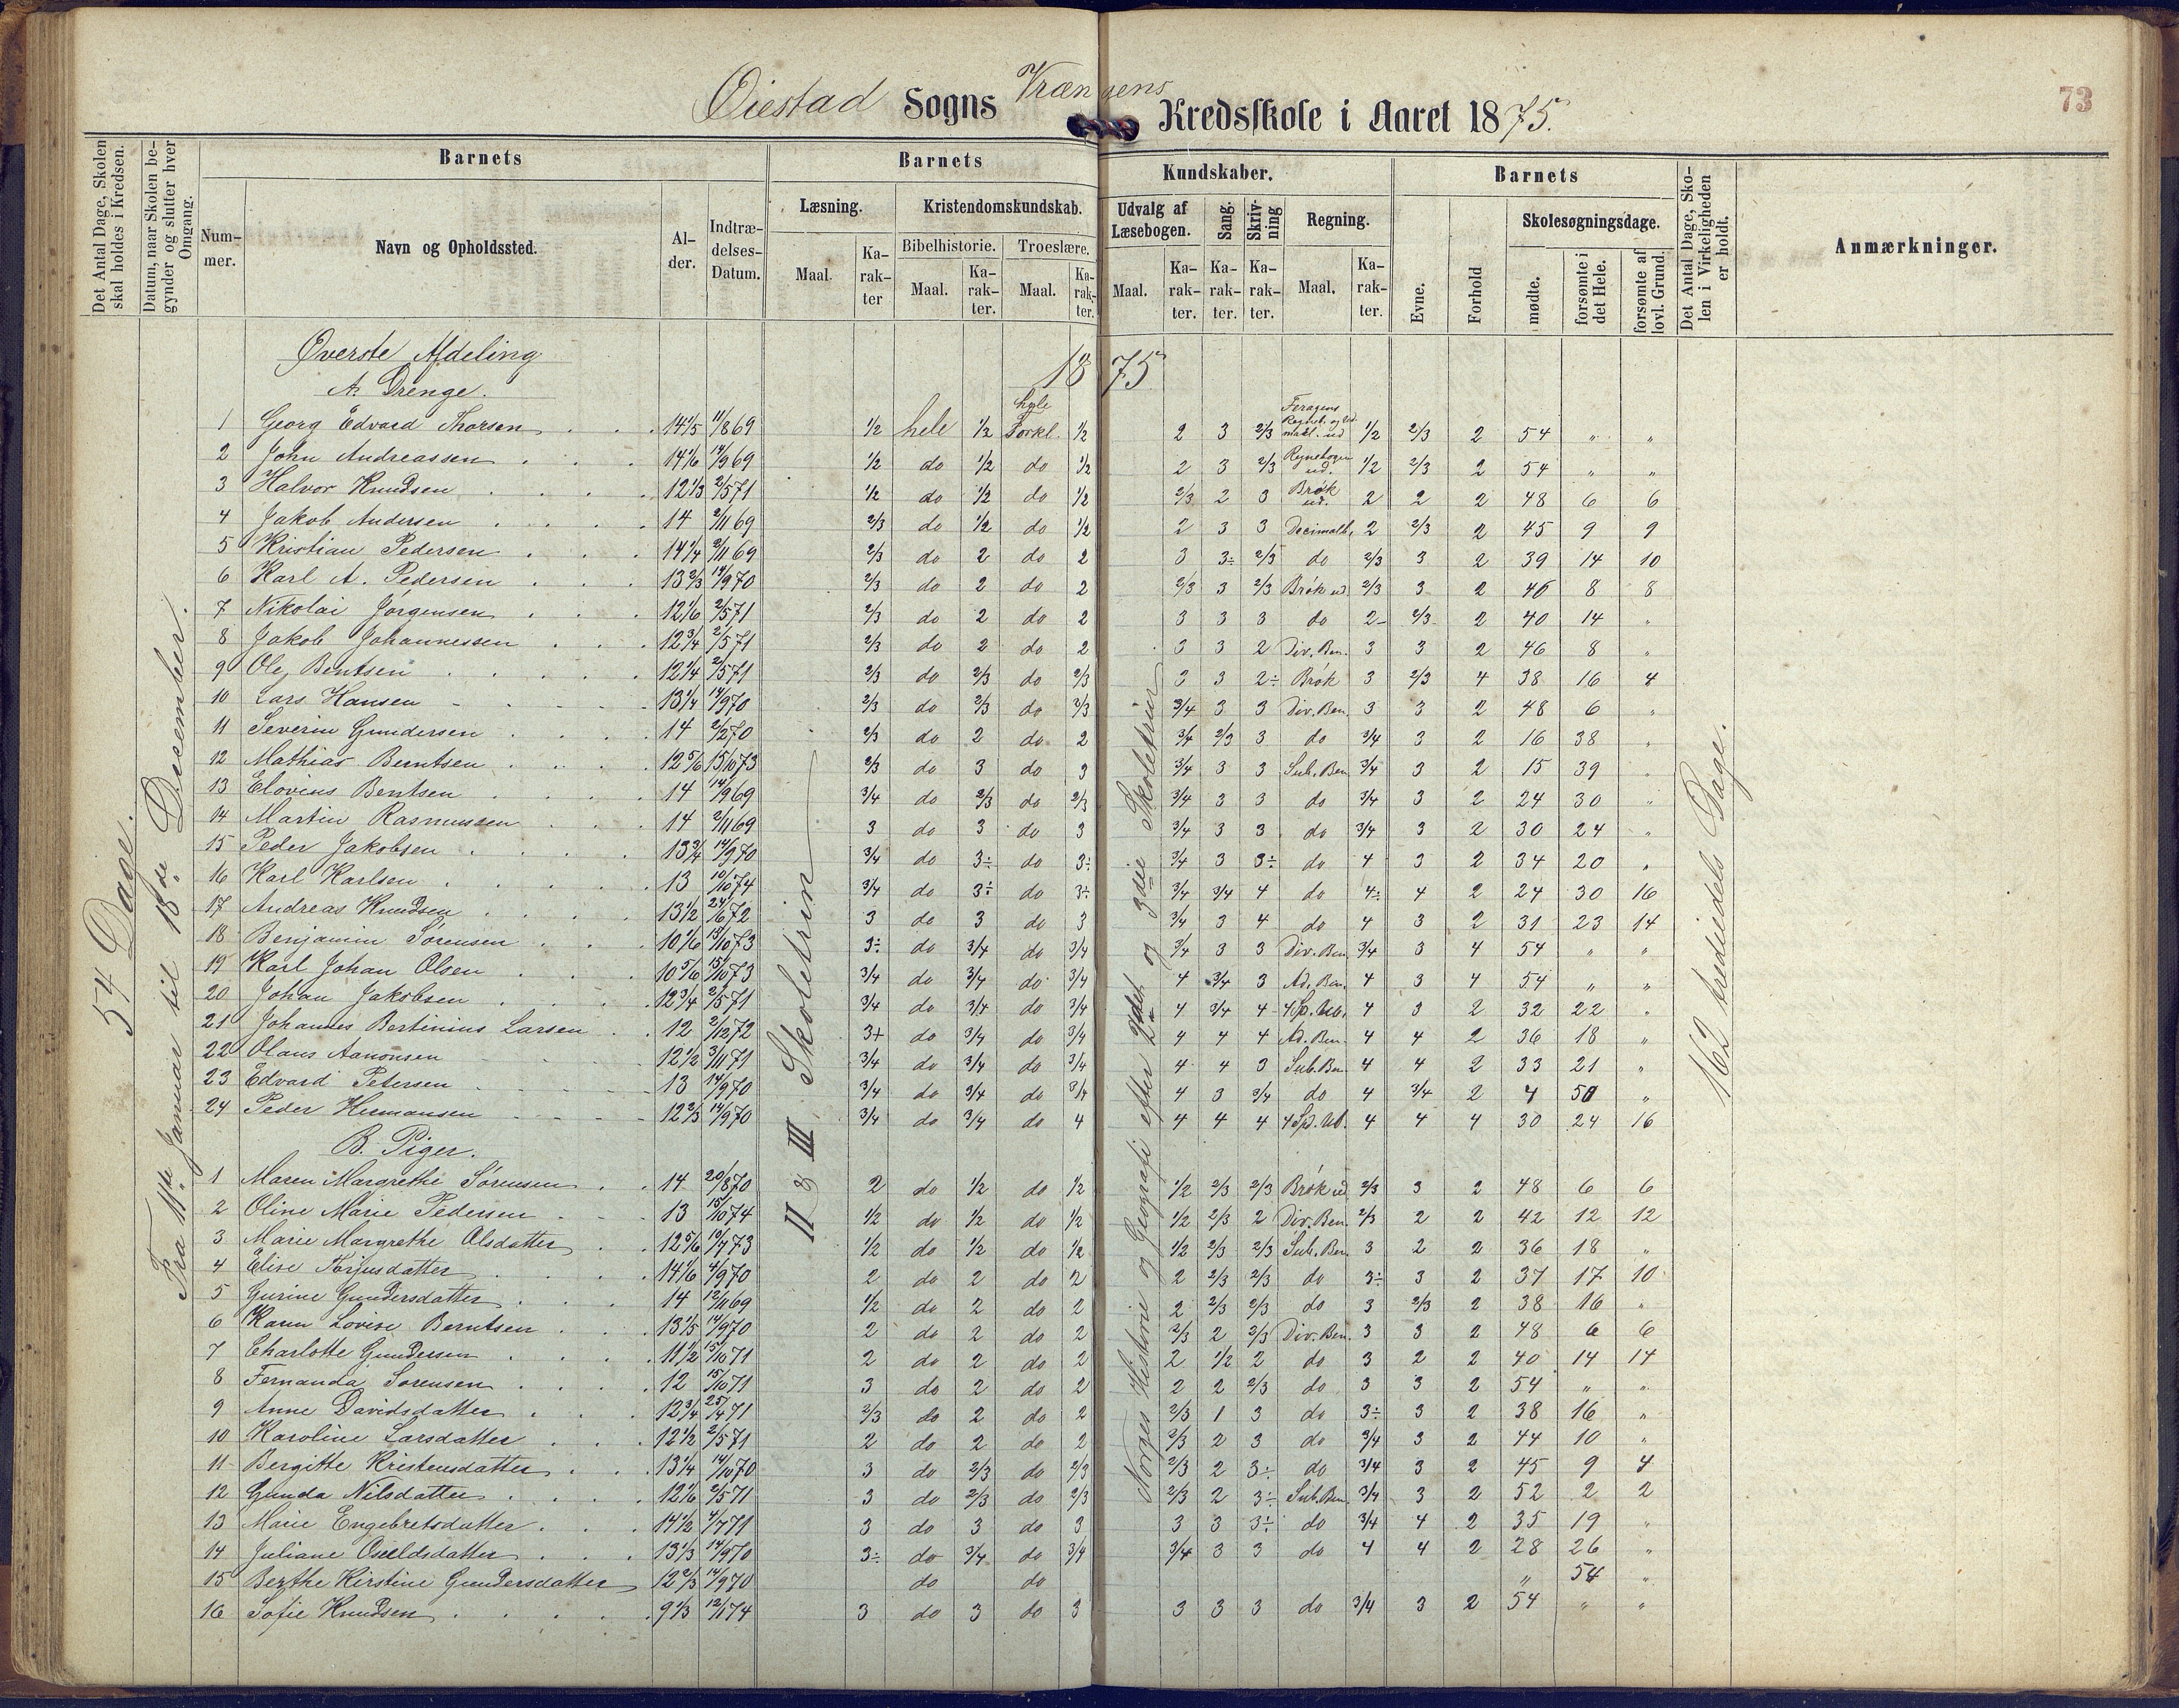 73
Øiestad Sogns Vrængens Kredsskole i Aaret 1875.
Det Antal Dage, Skolen skal holdes i Kredsen.
Datum, naar Skolen begynder og slutter hver Omgang.
Barnets
Nummer.
Navn og Opholdssted.
Alder.
Indtrædelses-Datum.
Barnets Kundskaber.
Læsning.
Maal.
Karakter
Kristendomskundskab.
Bibelhistorie.
Maal.
Karakter.
Troeslære.
Maal.
Karakter.
Udvalg af Læsebogen.
Maal.
Karakter.
Sang.
Karakter.
Skrivning
Karakter.
Regning.
Maal.
Karakter.
Barnets
Evne.
Forhold
Skolesøgningsdage.
mødte.
forsømte i det Hele.
forsømte af lovl. Grund.
Det Antal Dage, Skolen i Virkeligheden er holdt.
Anmærkninger.
54 Dage.
Fra 11te Januar til 18de December.
II & III Skoletrin
Norges Historie og Geografi efter 2det og 3die Skoletrin
162 trediedels Dage.
Øverste Afdeling
1875
A. Drenge.
1 Georg Edvard Thorsen 14 1/5 11/8 69 1/2 hele 1/2 hele Forkl. 1/2 2 3 2/3 1/2 2/3 2 54 " "
2 John Andreassen 14 1/6 14/9 69 1/2 do 1/2 do 1/2 2 3 2/3 Regnebogen ud. 1/2 2/3 2 54 " "
3 Halvor Knudsen 12 1/3 2/5 71 1/2 do 1/2 do 1/2 2/3 2 3 Brøk ud. 2 2 2 48 6 6
4 Jakob Andersen 14 2/11 69 2/3 do 1/2 do 1/2 2 3 3 Decimalb. 2 2/3 2 45 9 9
5 Kristian Pedersen 14 1/4 2/11 69 2/3 do 2 do 2 3 3÷ 2/3 do 2/3 3 2 39 14 10
6 Karl A. Pedersen 13 2/3 14/9 70 2/3 do 2 do 2 2/3 3 2/3 Brøk ud 2/3 3 2 46 8 8
7 Nikolai Jørgensen 12 1/6 2/5 71 2/3 do 2 do 2 3 3 3 do 2- 2/3 2 40 14 "
8 Jakob Johannessen 12 3/4 2/5 71 2/3 do 2 do 2 3 3 2 Div. Ben. 3 3 2 46 8 "
9 Ole Bentsen 12 1/4 2/5 71 2/3 do 2/3 do 2/3 3 3 2÷ Brøk 3 2/3 4 38 16 4
10 Lars Hansen 13 1/4 14/9 70 2/3 do 2/3 do 2/3 3/4 3 3 Div. Ben. 3 3 2 48 6 "
11 Severin Gundersen 14 2/2 70 2/3 do 2 do 2 3/4 2/3 3 do 3/4 3 2 16 38 "
12 Mathias Berntsen 12 5/6 15/10 73 2/3 do 3 do 3 3/4 3 3 Sub. Ben 3/4 3 2 15 39 "
13 Elovius Bentsen 14 14/9 69 3/4 do 2/3 do 2/3 3/4 3 3 do 3/4 3 2 24 30 "
14 Martin Rasmussen 14 2/11 69 3 do 3 do 3 3/4 3 3 do 3/4 3 2 30 24 "
15 Peder Jakobsen 13 3/4 14/9 70 3/4 do 3÷ do 3÷ 3/4 3 3÷ do 4 3 2 34 20 "
16 Karl Karlsen 13 10/10 74 3/4 do 3÷ do 3÷ 3/4 3/4 4 do 4÷ 4 2 24 30 16
17 Andreas Knudsen 13 1/2 24/6 72 3 do 3 do 3 3/4 3 4 do 4 3 2 31 23 14
18 Benjamin Sørensen 10 1/6 15/10 73 3÷ do 3/4 do 3/4 3/4 3 3 Div. Ben 3/4 3 4 54 " "
19 Karl Johan Olsen 10 5/6 15/10 73 3/4 do 3/4 do 3/4 4 3/4 3 Ad. Ben. 4 3 4 54 " "
20 Johan Jakobsen 12 3/4 2/5 71 3/4 do 3/4 do 3/4 4 3/4 4 4 Sp. Ub. 4 3 2 32 22 "
21 Johannes Bertinius Larsen 12 2/12 72 3+ do 3/4 do 3/4 4 4 4 Ad. Ben. 4 4 2 36 18 "
22 Olaus Aanonsen 12 1/2 3/11 71 3/4 do 3/4 do 3/4 4 4 3 Sub. Ben 4 4 2 33 21 "
23 Edvard Petersen 13 14/9 70 3/4 do 3/4 do 3/4 4 3 3/4 do 4 3/4 2 4 50 "
24 Peder Hermansen 12 2/3 14/9 70 3/4 do 3/4 do 4 4 4 4 4 Sp. Ub. 4 4 4 30 24 16
B. Piger.
1 Maren Margrethe Sørensen 14 20/8 70 2 do 1/2 do 1/2 1/2 2/3 2/3 Brøk ud 2/3 3 2 48 6 6
2 Oline Marie Pedersen 13 15/10 74 1/2 do 1/2 do 1/2 1/2 2/3 2 Div. Ben. 2/3 2 2 42 12 12
3 Marie Margrethe Olsdatter 12 5/6 10/7 73 1/2 do 1/2 do 1/2 1/2 2/3 2/3 Sub. Ben. 3 2 2 36 18 "
4 Elise Terjusdatter 14 1/6 4/9 70 2 do 2 do 2 2 2/3 2/3 do 3÷ 3 2 37 17 10
5 Gurine Gundersdatter 14 12/11 69 1/2 do 2 do 2 2 2/3 2/3 do 3 2/3 2 38 16 "
6 Karen Lovise Berntsen 13 1/5 14/9 70 2 do 2 do 2 2/3 2 2/3 Div. Ben. 3 3 2 48 6 6
7 Charlotte Gundersen 11 1/2 15/10 71 2 do 2 do 2 2 1/2 2 do 3 2 2 40 14 14
8 Fernanda Sørensen 12 15/10 71 3 do 2 do 2 2 2 2/3 do 3 3 2 54 " "
9 Anne Davidsdatter 12 3/4 25/4 71 2/3 do 2 do 2 2/3 1 3 do 3÷ 3 2 38 16 "
10 Karoline Larsdatter 12 1/2 2/5 71 2 do 2 do 2 2/3 2 3 do 3/4 3 2 44 10 "
11 Bergitte Kristensdatter 13 1/4 14/10 70 3 do 2/3 do 2/3 2/3 2 3÷ do 3/4 3 2 45 9 4
12 Gunda Nilsdatter 12 1/6 2/5 71 3 do 2/3 do 2/3 2/3 2 3÷ Sub. Ben 3/4 3 2 52 2 2
13 Marie Engebretsdatter 14 1/2 4/7 71 3 do 3 do 3 3 3 3÷ do 3/4 4 2 35 19 "
14 Juliane Oseldsdatter 13 1/3 14/9 70 3÷ do 3/4 do 3/4 3/4 3 3 do 4 4 2 28 26 "
15 Berthe Kirstine Gundersdatter 12 2/3 14/9 70 do do " 54 "
16 Sofie Knudsen 9 1/3 12/1 74 3 do 3 do 3 3 3 3 do 3/4 3 2 54 " "